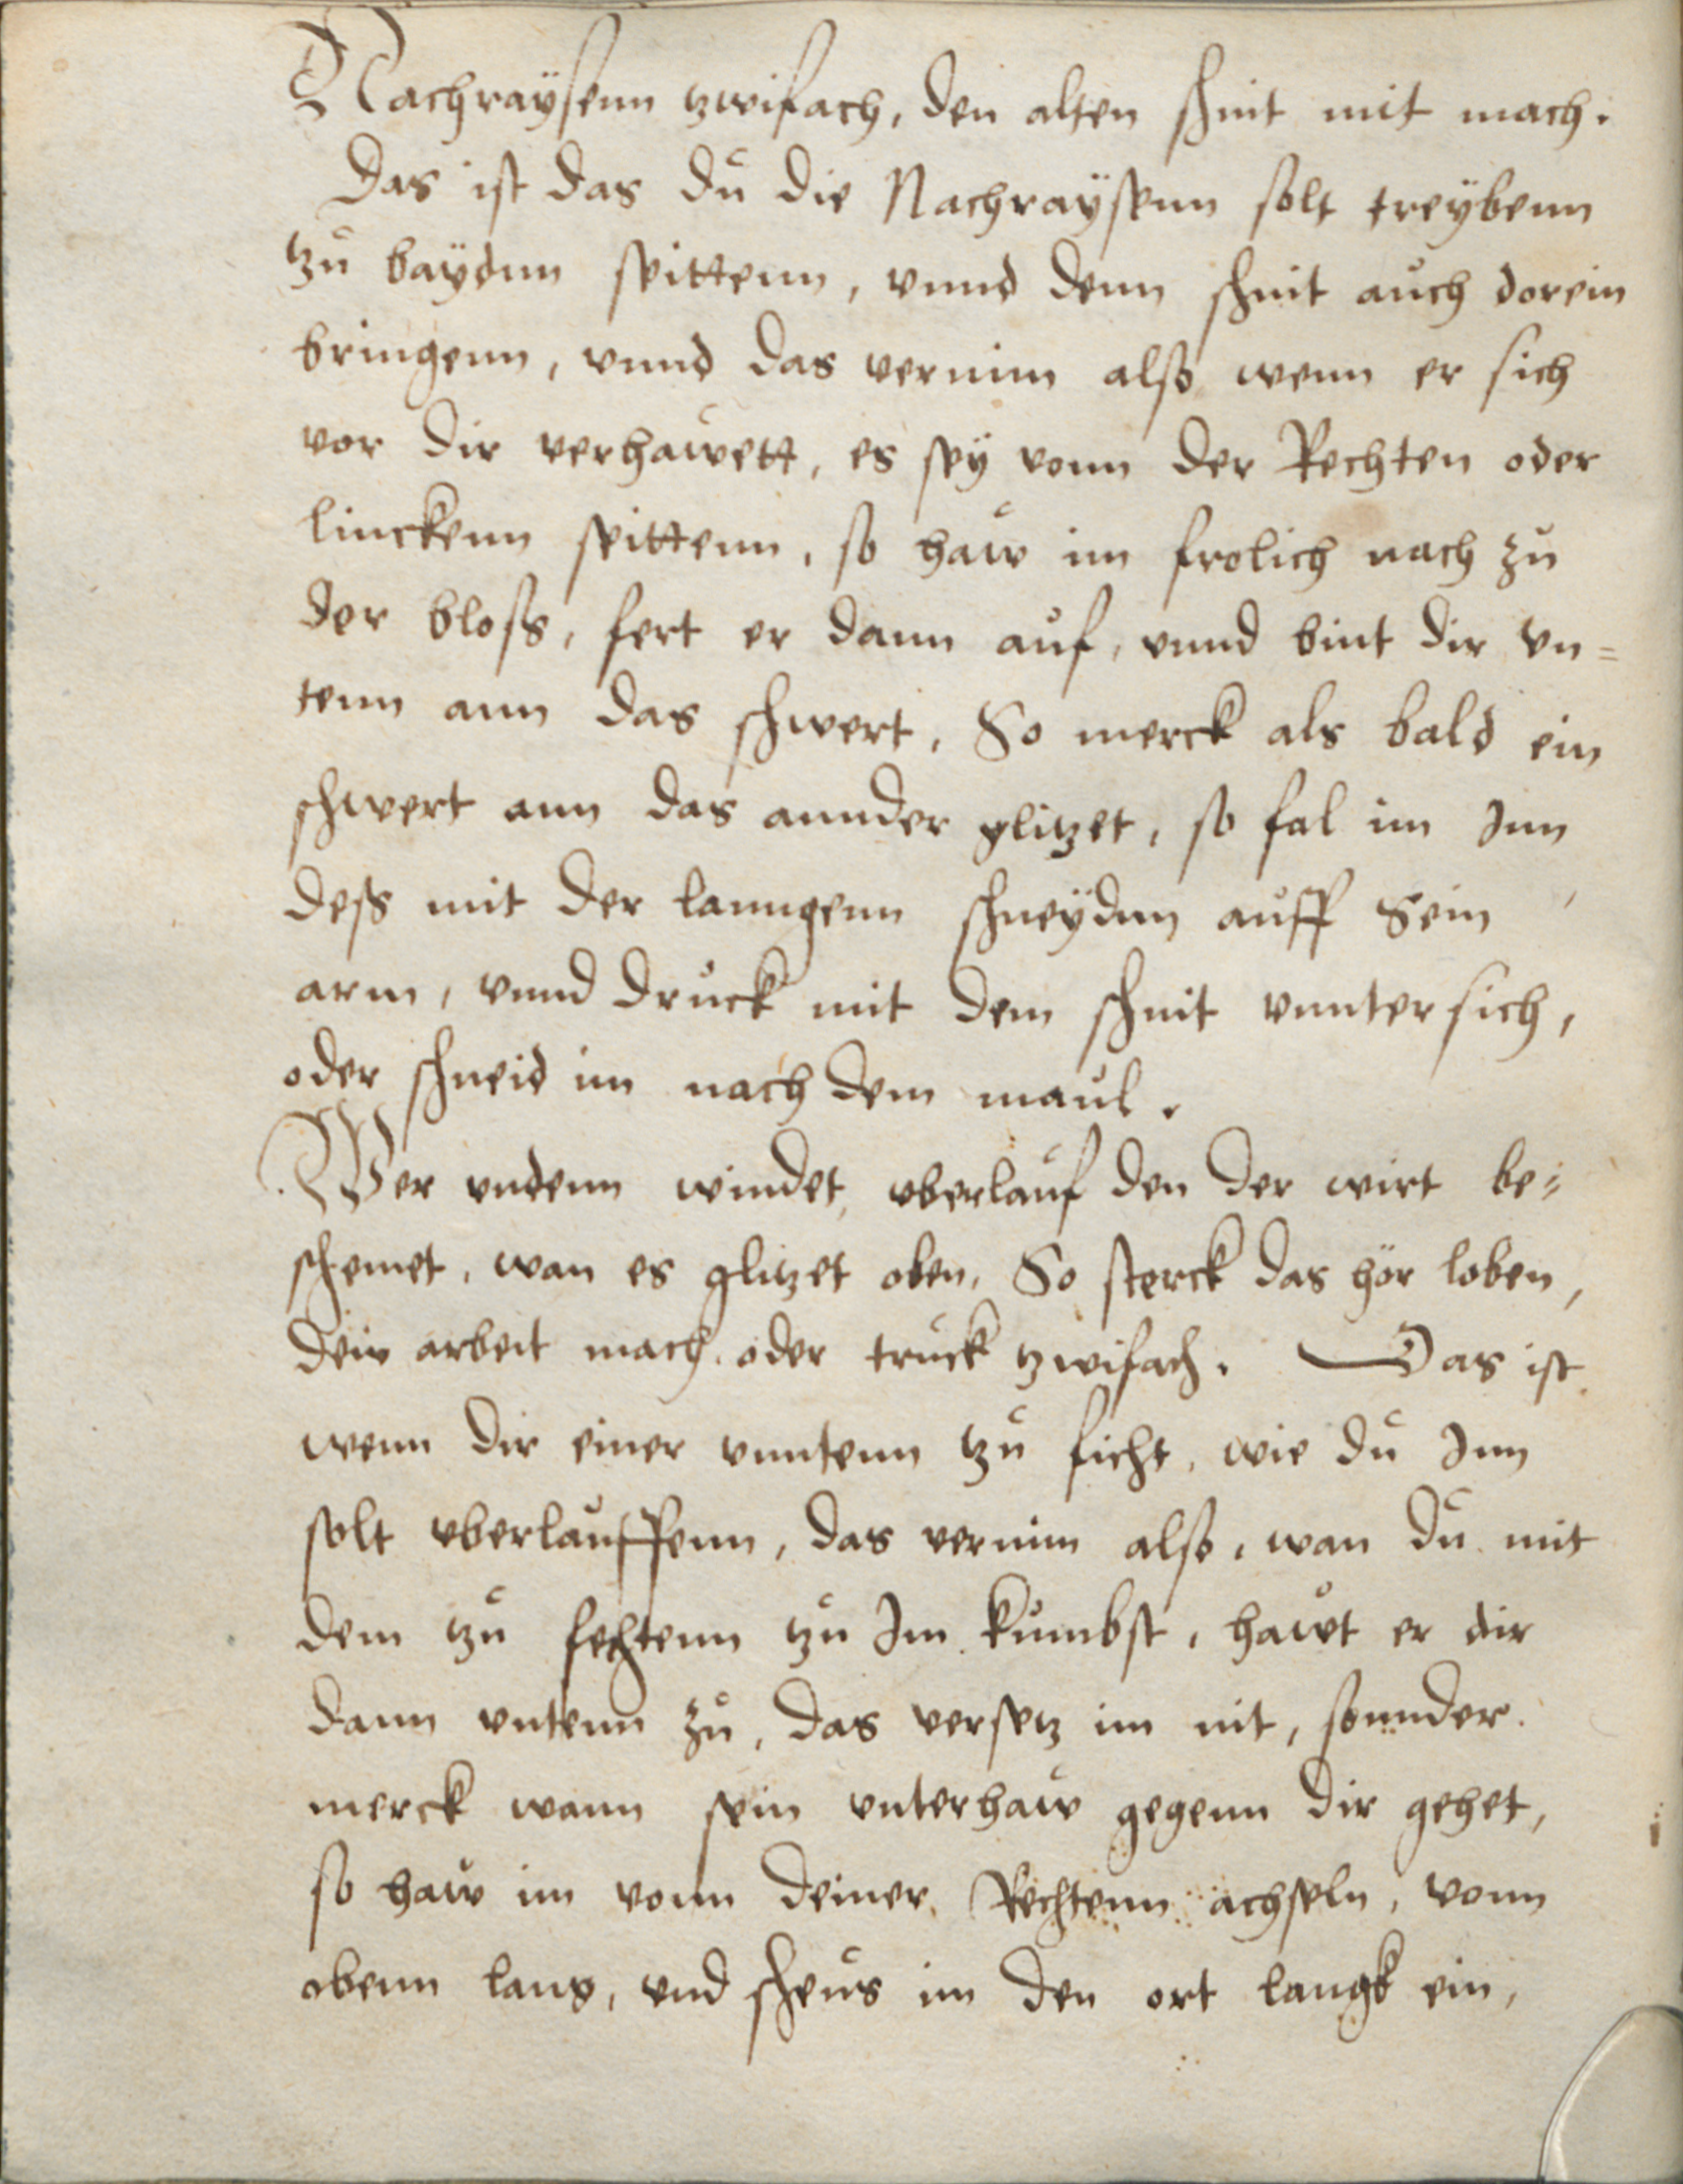 Nachraÿsenn tzwifach, den alten schnit mit mach.
Das ist das dů die Nachraÿsenn solt treÿbenn
tzů baÿdnn seittenn, vnnd denn schnit aůch dorein
bringenn, vnnd das vernim also wenn er sich
vor dir verhaẘett, es seÿ vonn der Rechten oder
linckenn seittenn, so haẘ im frolich nach zů
der bloss, fert er dann aůf, vnnd bint dir vn=
tenn ann das schwert, So merck als bald ein
schwert ann das annder glitzet, so fal im Inn
dess mit der lanngenn schneÿdnn aůff Sein
arm, vnnd drůck mit dem schnit vnntersich,
oder schneid im nach dem maůl.
Wer vndenn windet, vberlaůf den der wirt be=
schemet, wan es glitzet oben, So sterck das hör loben,
dein arbeit mach. oder trůck tzwifach. Das ist
wenn dir einer vnntenn tzů ficht, wie dů Inn
solt vberlaůffenn, das vernim also, wan dů mit
dem tzů fechtenn tzů Im kůmbst, haẘt er dir
dann vntenn zů, das versetz im nit, sonnder
merck wann sein vnterhaẘ gegenn dir gehet,
so haẘ im vonn deiner Rechtenn achseln, vonn
obenn lang, vnd scheůs im den ort langk ein,